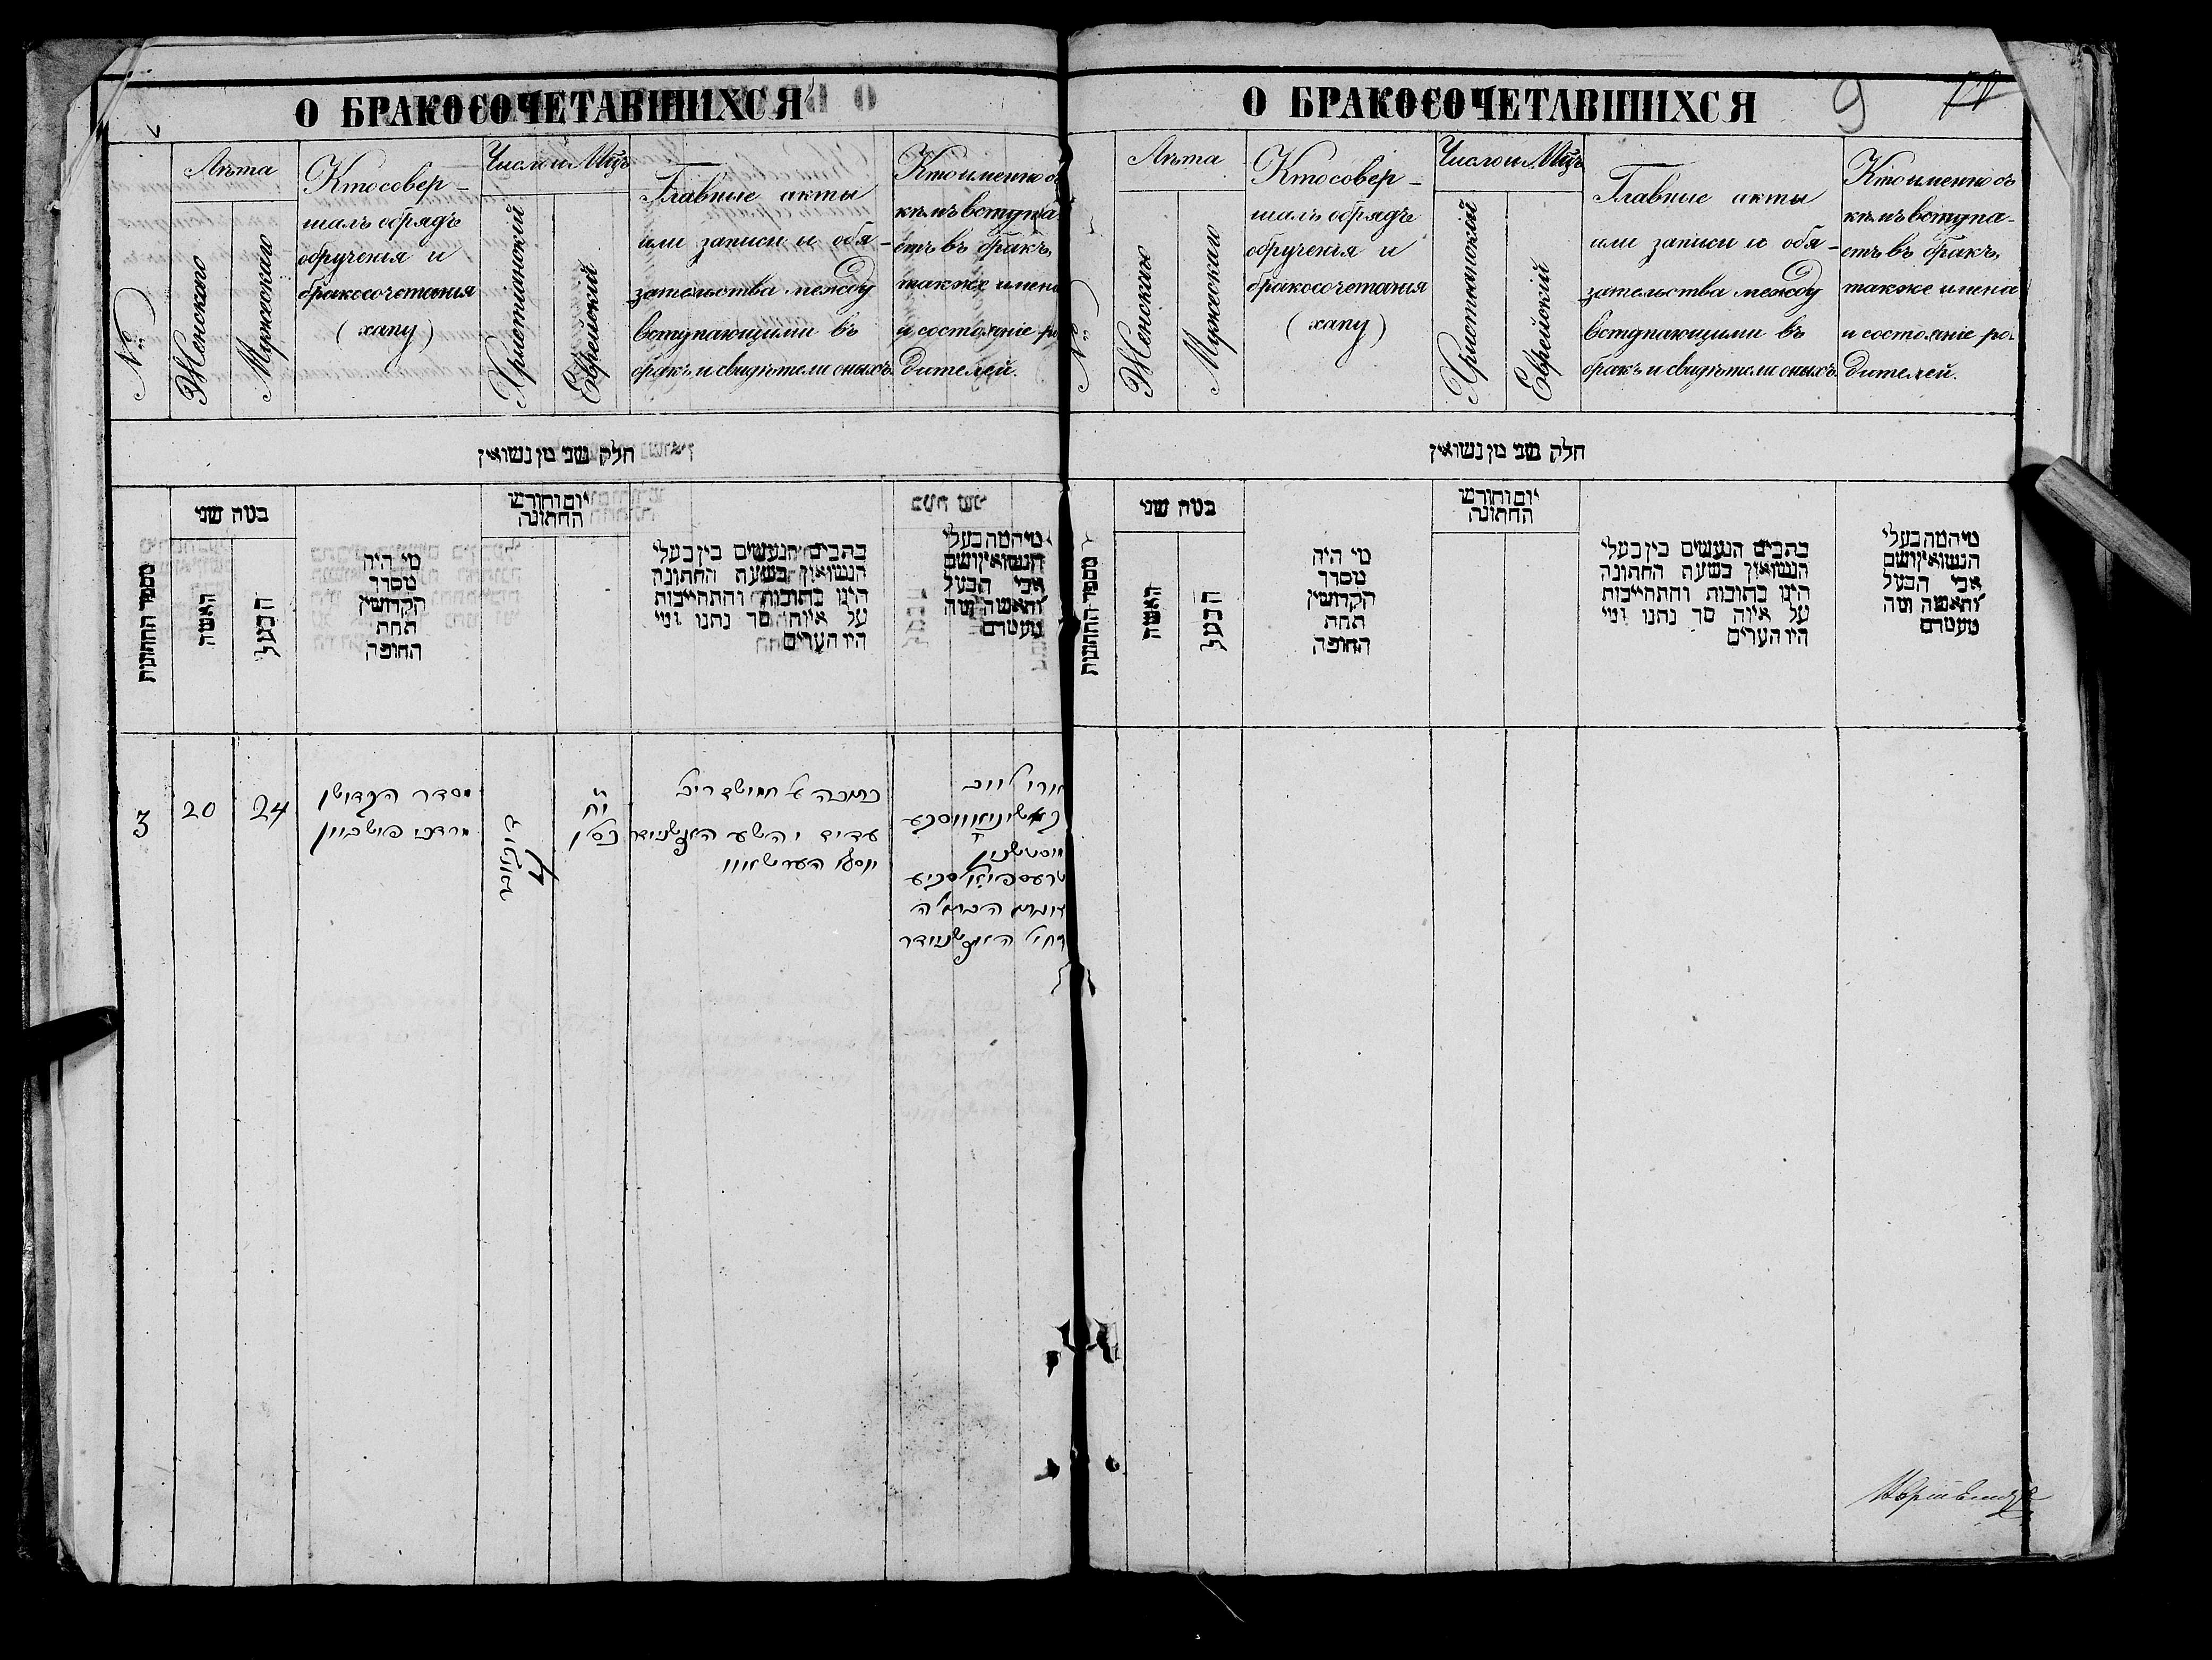 О БРАКОСОЧЕТАВШИХСЯ
№
Лѣта
Женскаго
Мужескаго
Кто совер-
шалъ обрядъ
обрученія и
бракосочетанія
(хапу)
Число и Мѣцъ
Христіанскій
Еврейскій
Главные акты
или записи и обя-
зательства между
вступающими въ
бракъ и свидѣтели оныхъ.
Кто именно съ
кѣмъ вступа-
етъ въ бракъ,
также имена
и состояніе ро-
дителей.
חלק שני מן נשואין
מספר החתונות
כמה שני
האשה
הבעל
מי היה
מסדר
הקדושין
תחת
החופה
יום וחודש
החתונה
כתבים הנעשים בין בעלי
הנשואין בשעת החתונה
הינו כתובות והתחייבות
על איזה סך נתנו ומי
היו העדים
מי המה בעלי
הנשואין ושם
אבי הבעל
והאשה ומה
מעמדם
3
20
24
מסדר הקדושין
מרדכי
4
י״ח
כסלו
כתובה על
עדים
О БРАКОСОЧЕТАВШИХСЯ
9
№
Лѣта
Женскаго
Мужескаго
Кто совер-
шалъ обрядъ
обрученія и
бракосочетанія
(хапу)
Число и Мѣцъ
Христіанскій
Еврейскій
Главные акты
или записи и обя-
зательства между
вступающими въ
бракъ и свидѣтели оныхъ.
Кто именно съ
кѣмъ вступа-
етъ въ бракъ,
также имена
и состояніе ро-
дителей.
חלק שני מן נשואין
מספר החתונות
כמה שני
האשה
הבעל
מי היה
מסדר
הקדושין
תחת
החופה
יום וחודש
החתונה
כתבים הנעשים בין בעלי
הנשואין בשעת החתונה
הינו כתובות והתחייבות
על איזה סך נתנו ומי
היו העדים
מי המה בעלי
הנשואין ושם
אבי הבעל
והאשה ומה
מעמדם